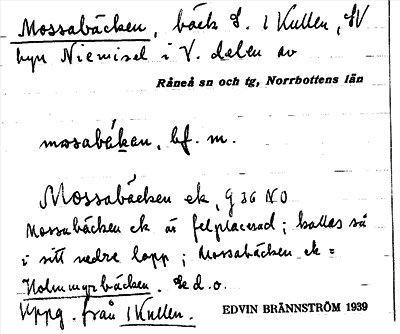 Mossabäcken, bäck S. 1 Kullen, SV
byn Niemisel i V. delen av
Råneå sn och tg, Norrbottens län
mosabäken, bf. m.
Mossabäcken ek, g 36 NO
Mossabäcken ek är felplacerad; kallas så
i sitt nedre lopp; Mossabäcken ek =
Holmmyrbäcken. Se d.o.
Uppg. från 1 Kullen.
EDVIN BRÄNNSTRÖM 1939